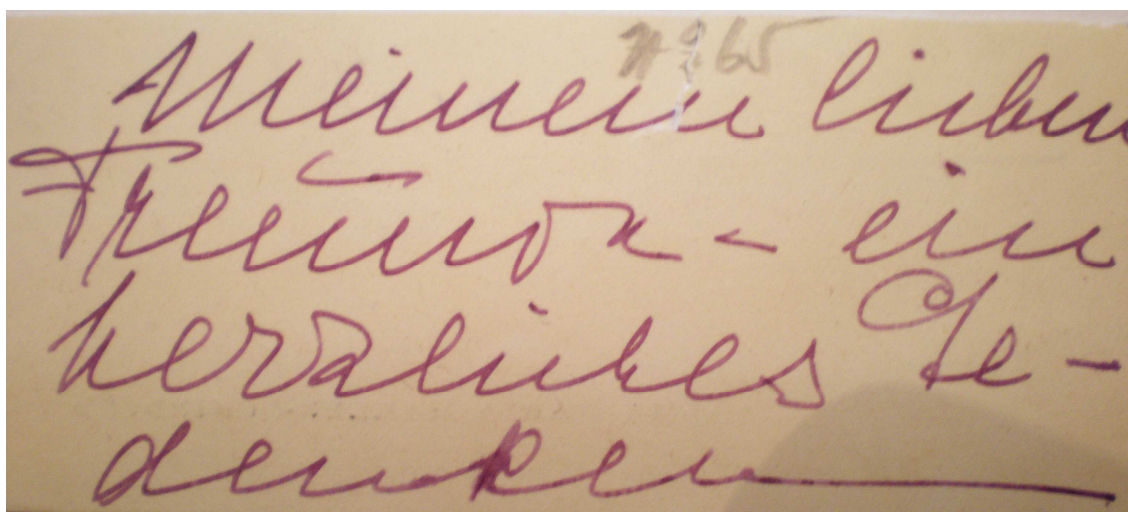 Meinem lieben
Freund - ein
herzliches Ge-
denken